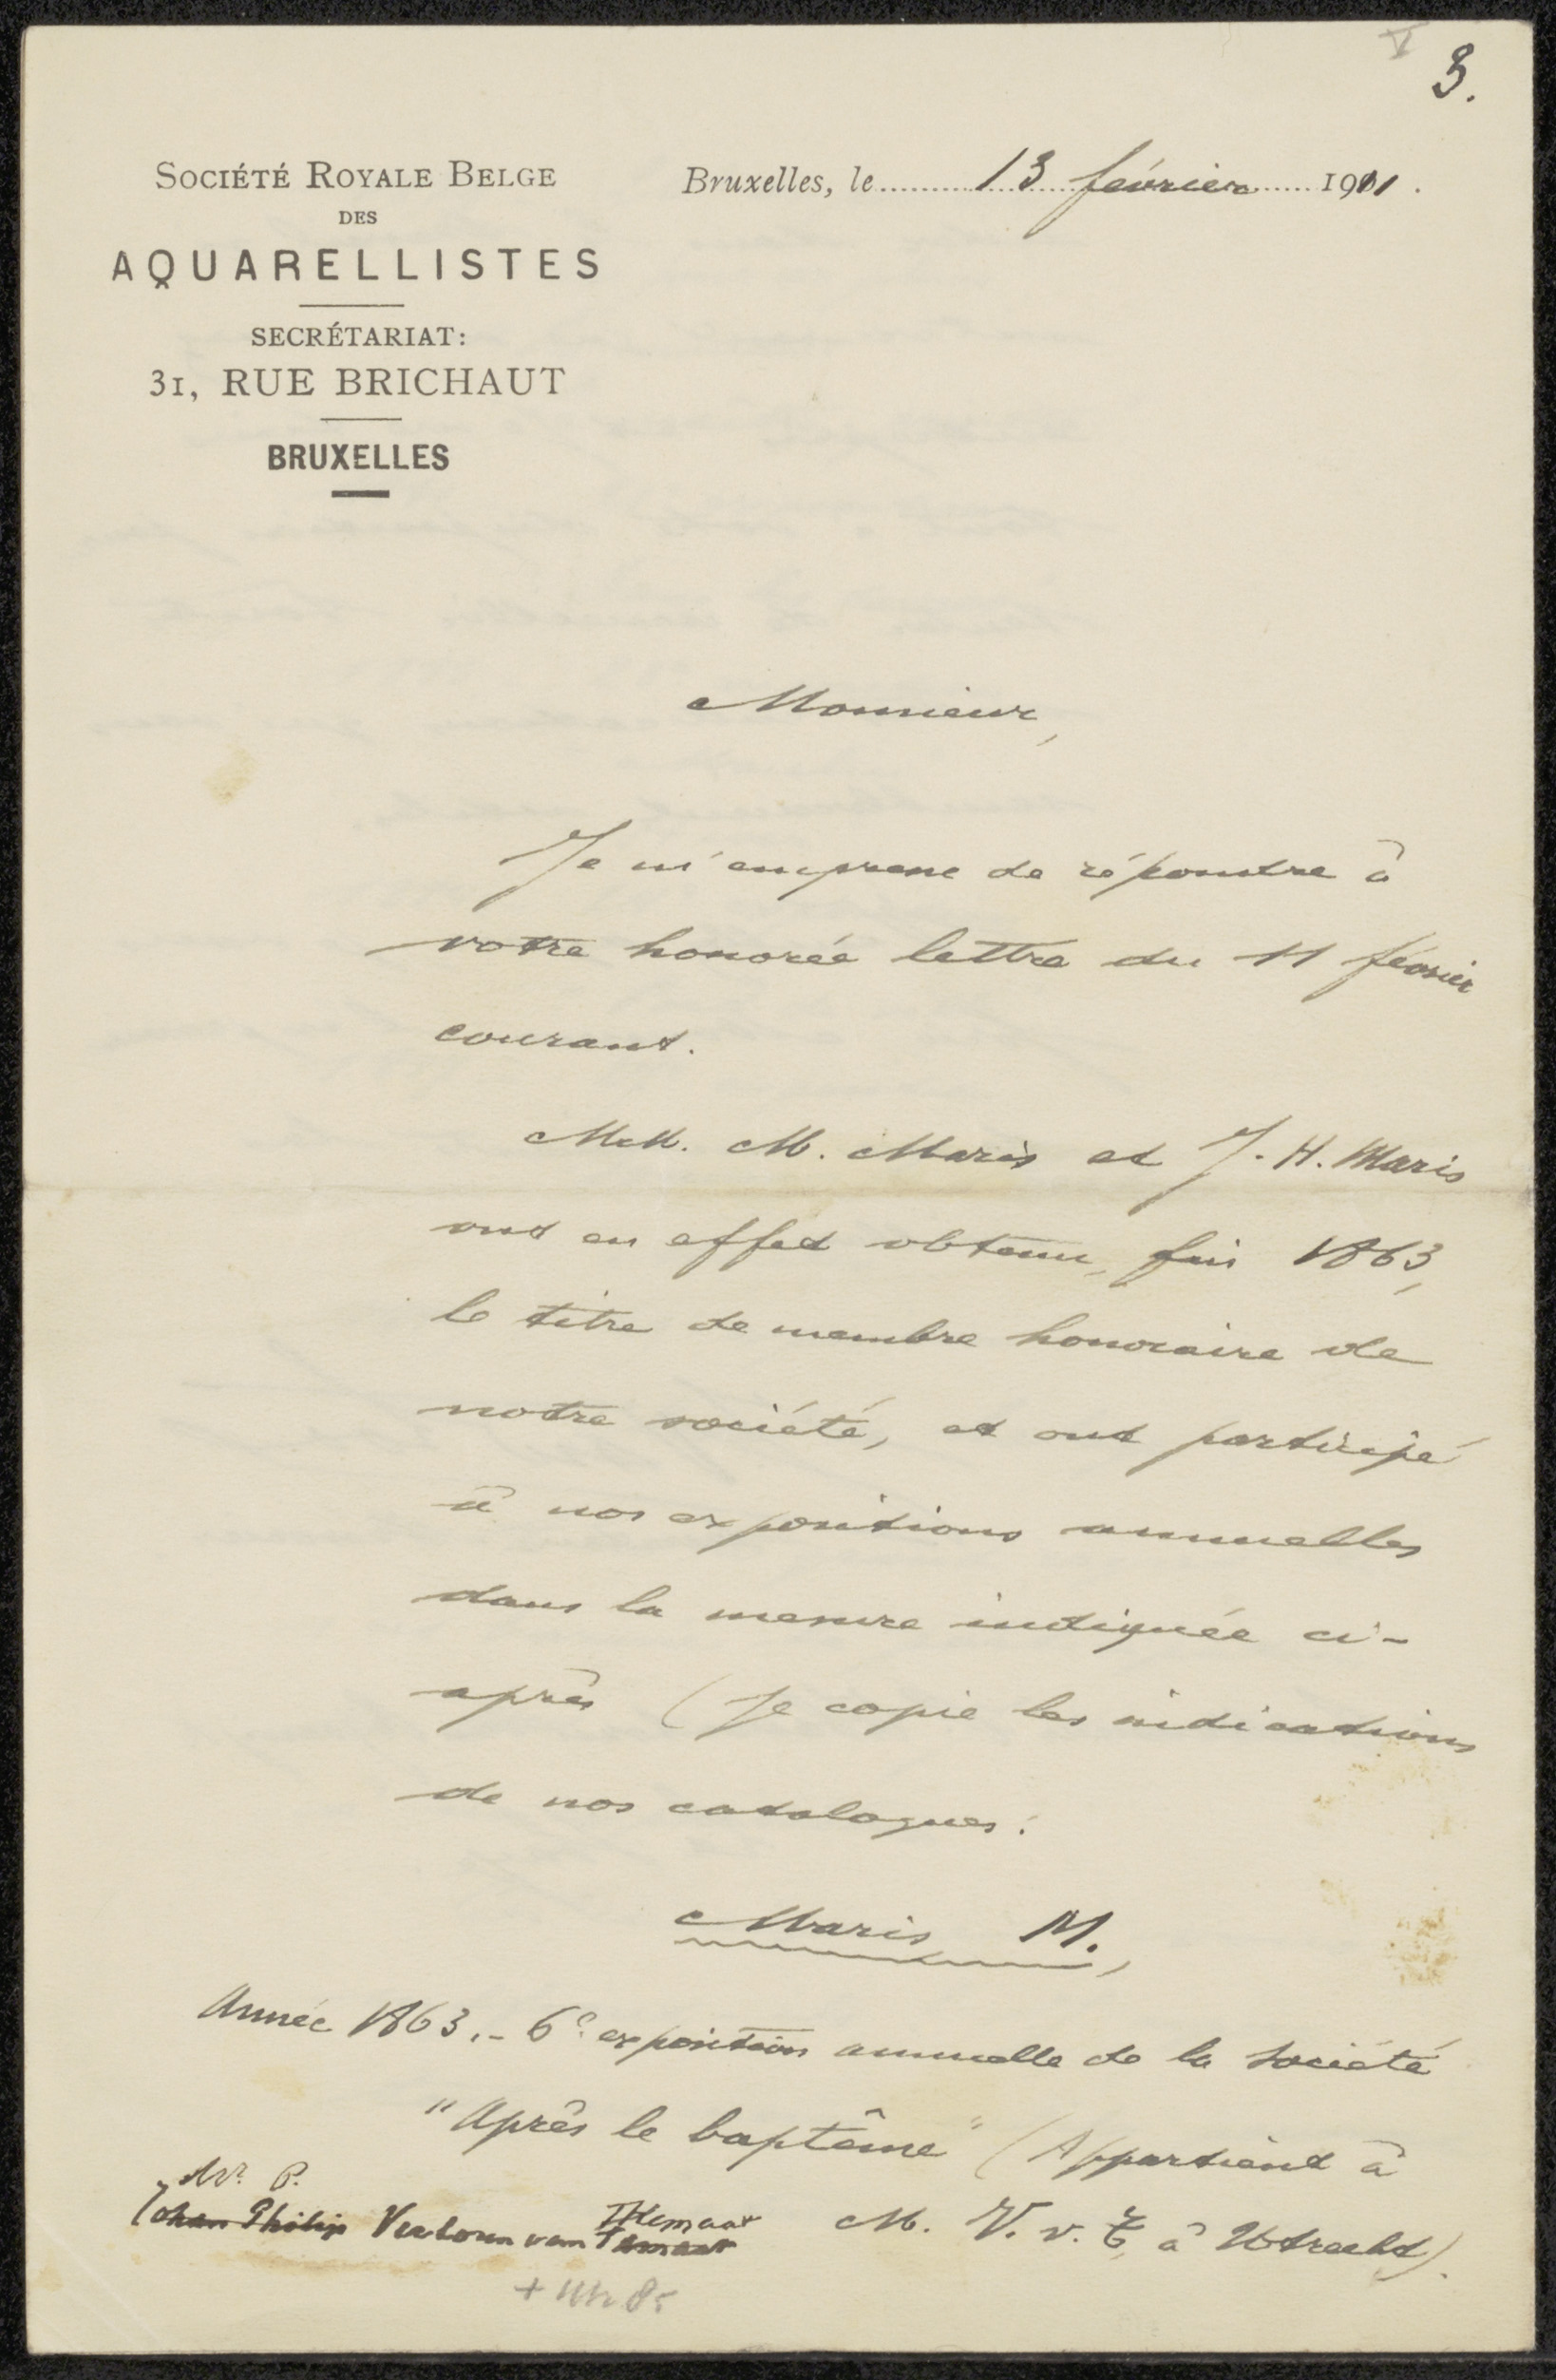 V
3.
SOCIÉTÉ ROYALE BELGE
DES
AQUARELLISTES
SECRÉTARIAT:
31, RUE BRICHAUT
BRUXELLES
Bruxelles, le 13 février 1911.
Monsieur,
Je m'empresse de répondre à
votre honorée lettre du 11 février
courant.
MM. M. Maris et J. H. Maris
ont en effet obtenu, fin 1863,
le titre de membre honoraire de
notre société, et ont participé
à nos expositions annuelles
dans la mesure indiquée ci-
après (Je copie les indications
de nos catalogues:
Maris M.,
Année 1863.- 6e exposition annuelle de la Société
"Après le baptême" (Appartient à
M. V. v. T, à Utrecht).
Mr. P.
Johan Philip Verloren van Themaat